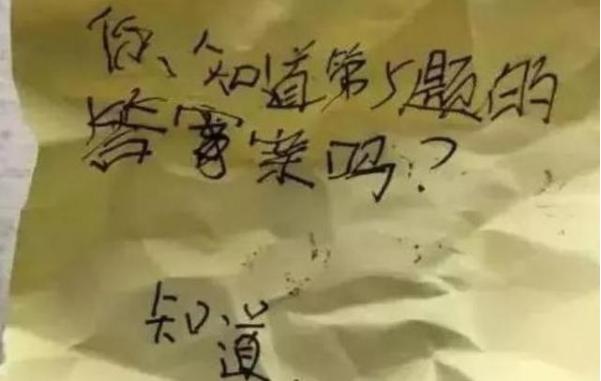 你、知道第5题的
答案吗?
知道